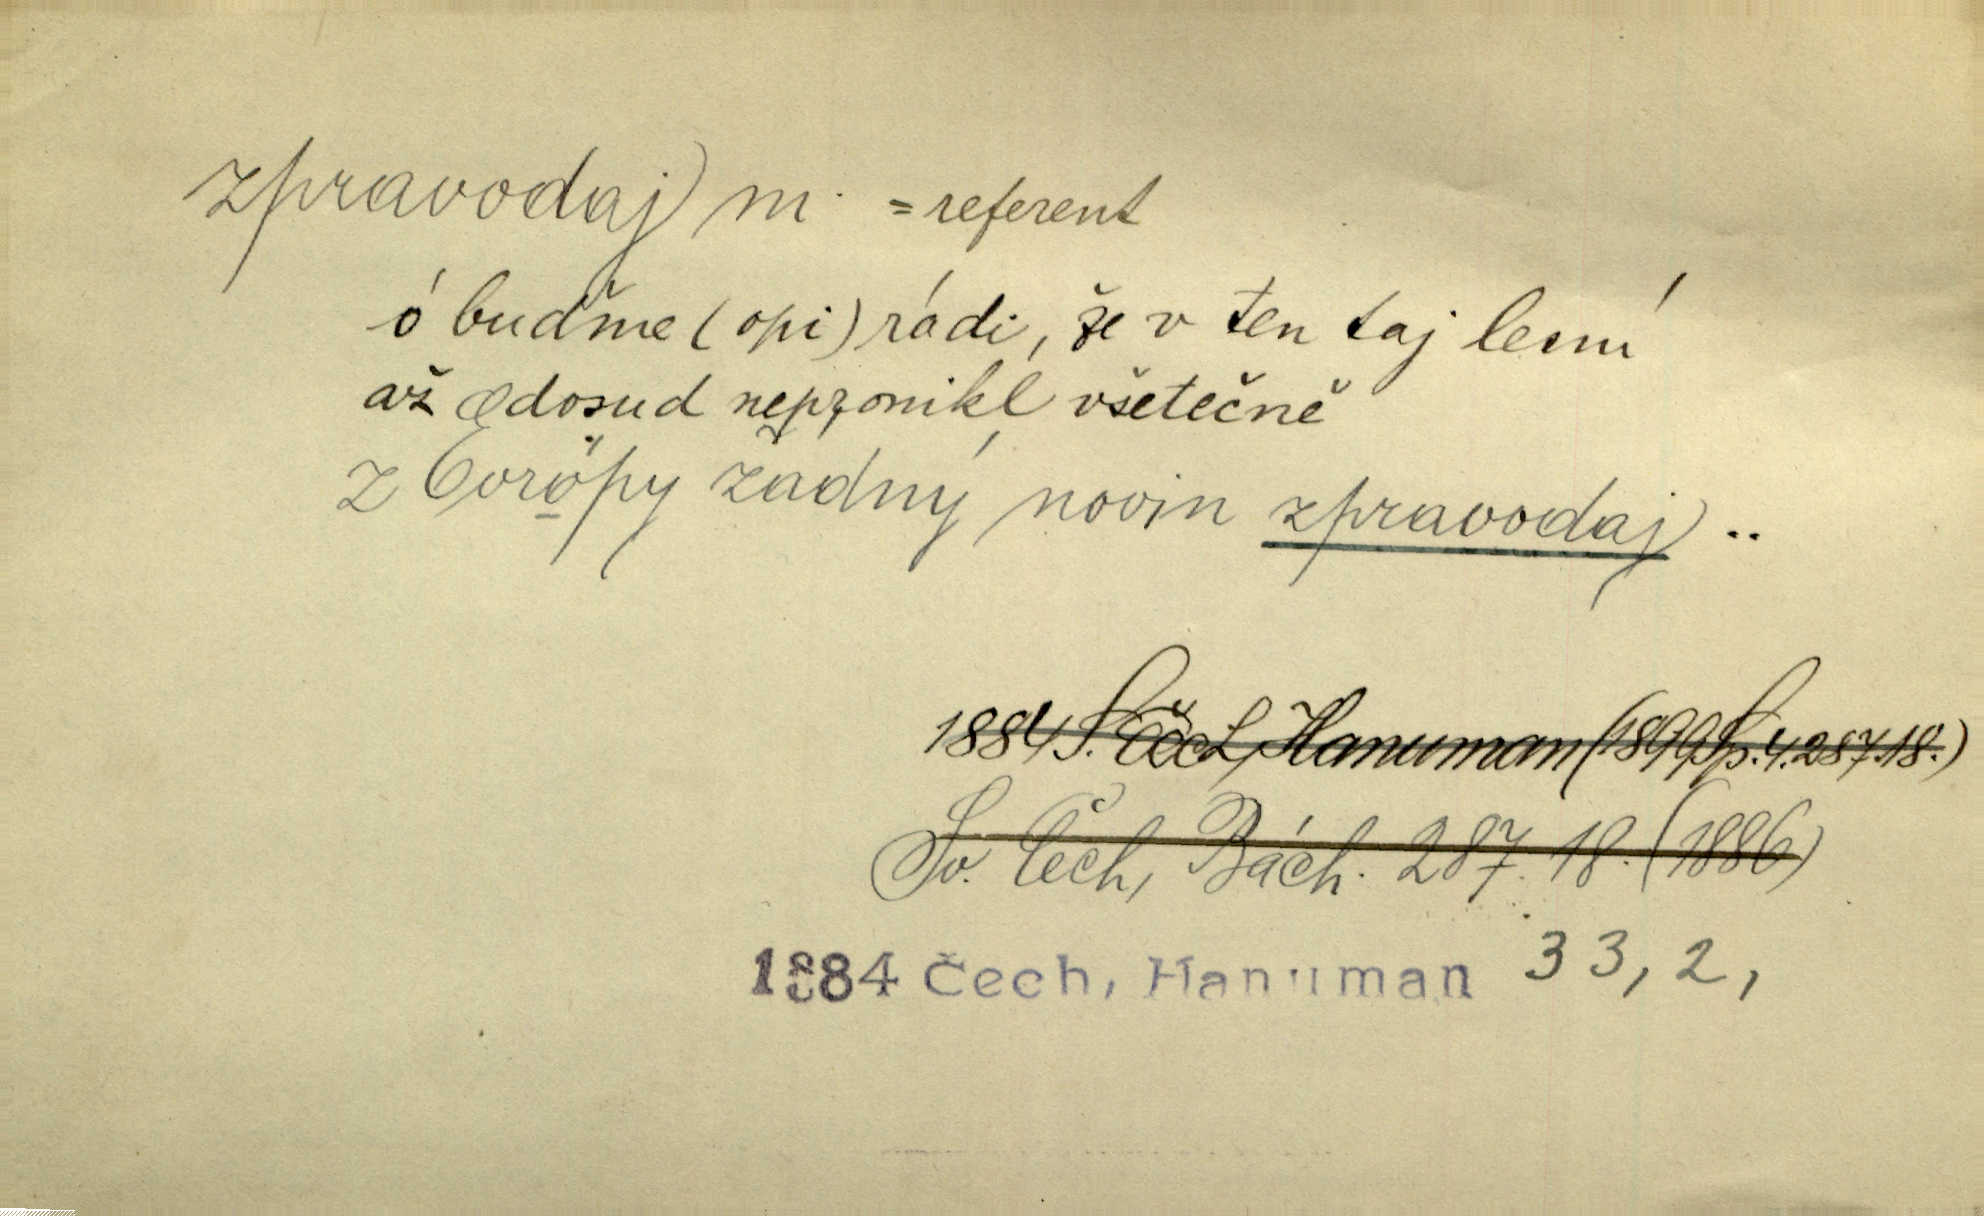 zpravodaj m. = referent
ó buďme (opi) rádi, že v ten taj lesní
až dosud nepronikl všetečně
z Evropy žádný novin zpravodaj ..
1884 S. Čech, Hanuman (1899 Sp. 4. 287.18.)
Sv. Čech, Bách. 287. 18. (1886)
1884 Čech, Hanuman 33, 2,